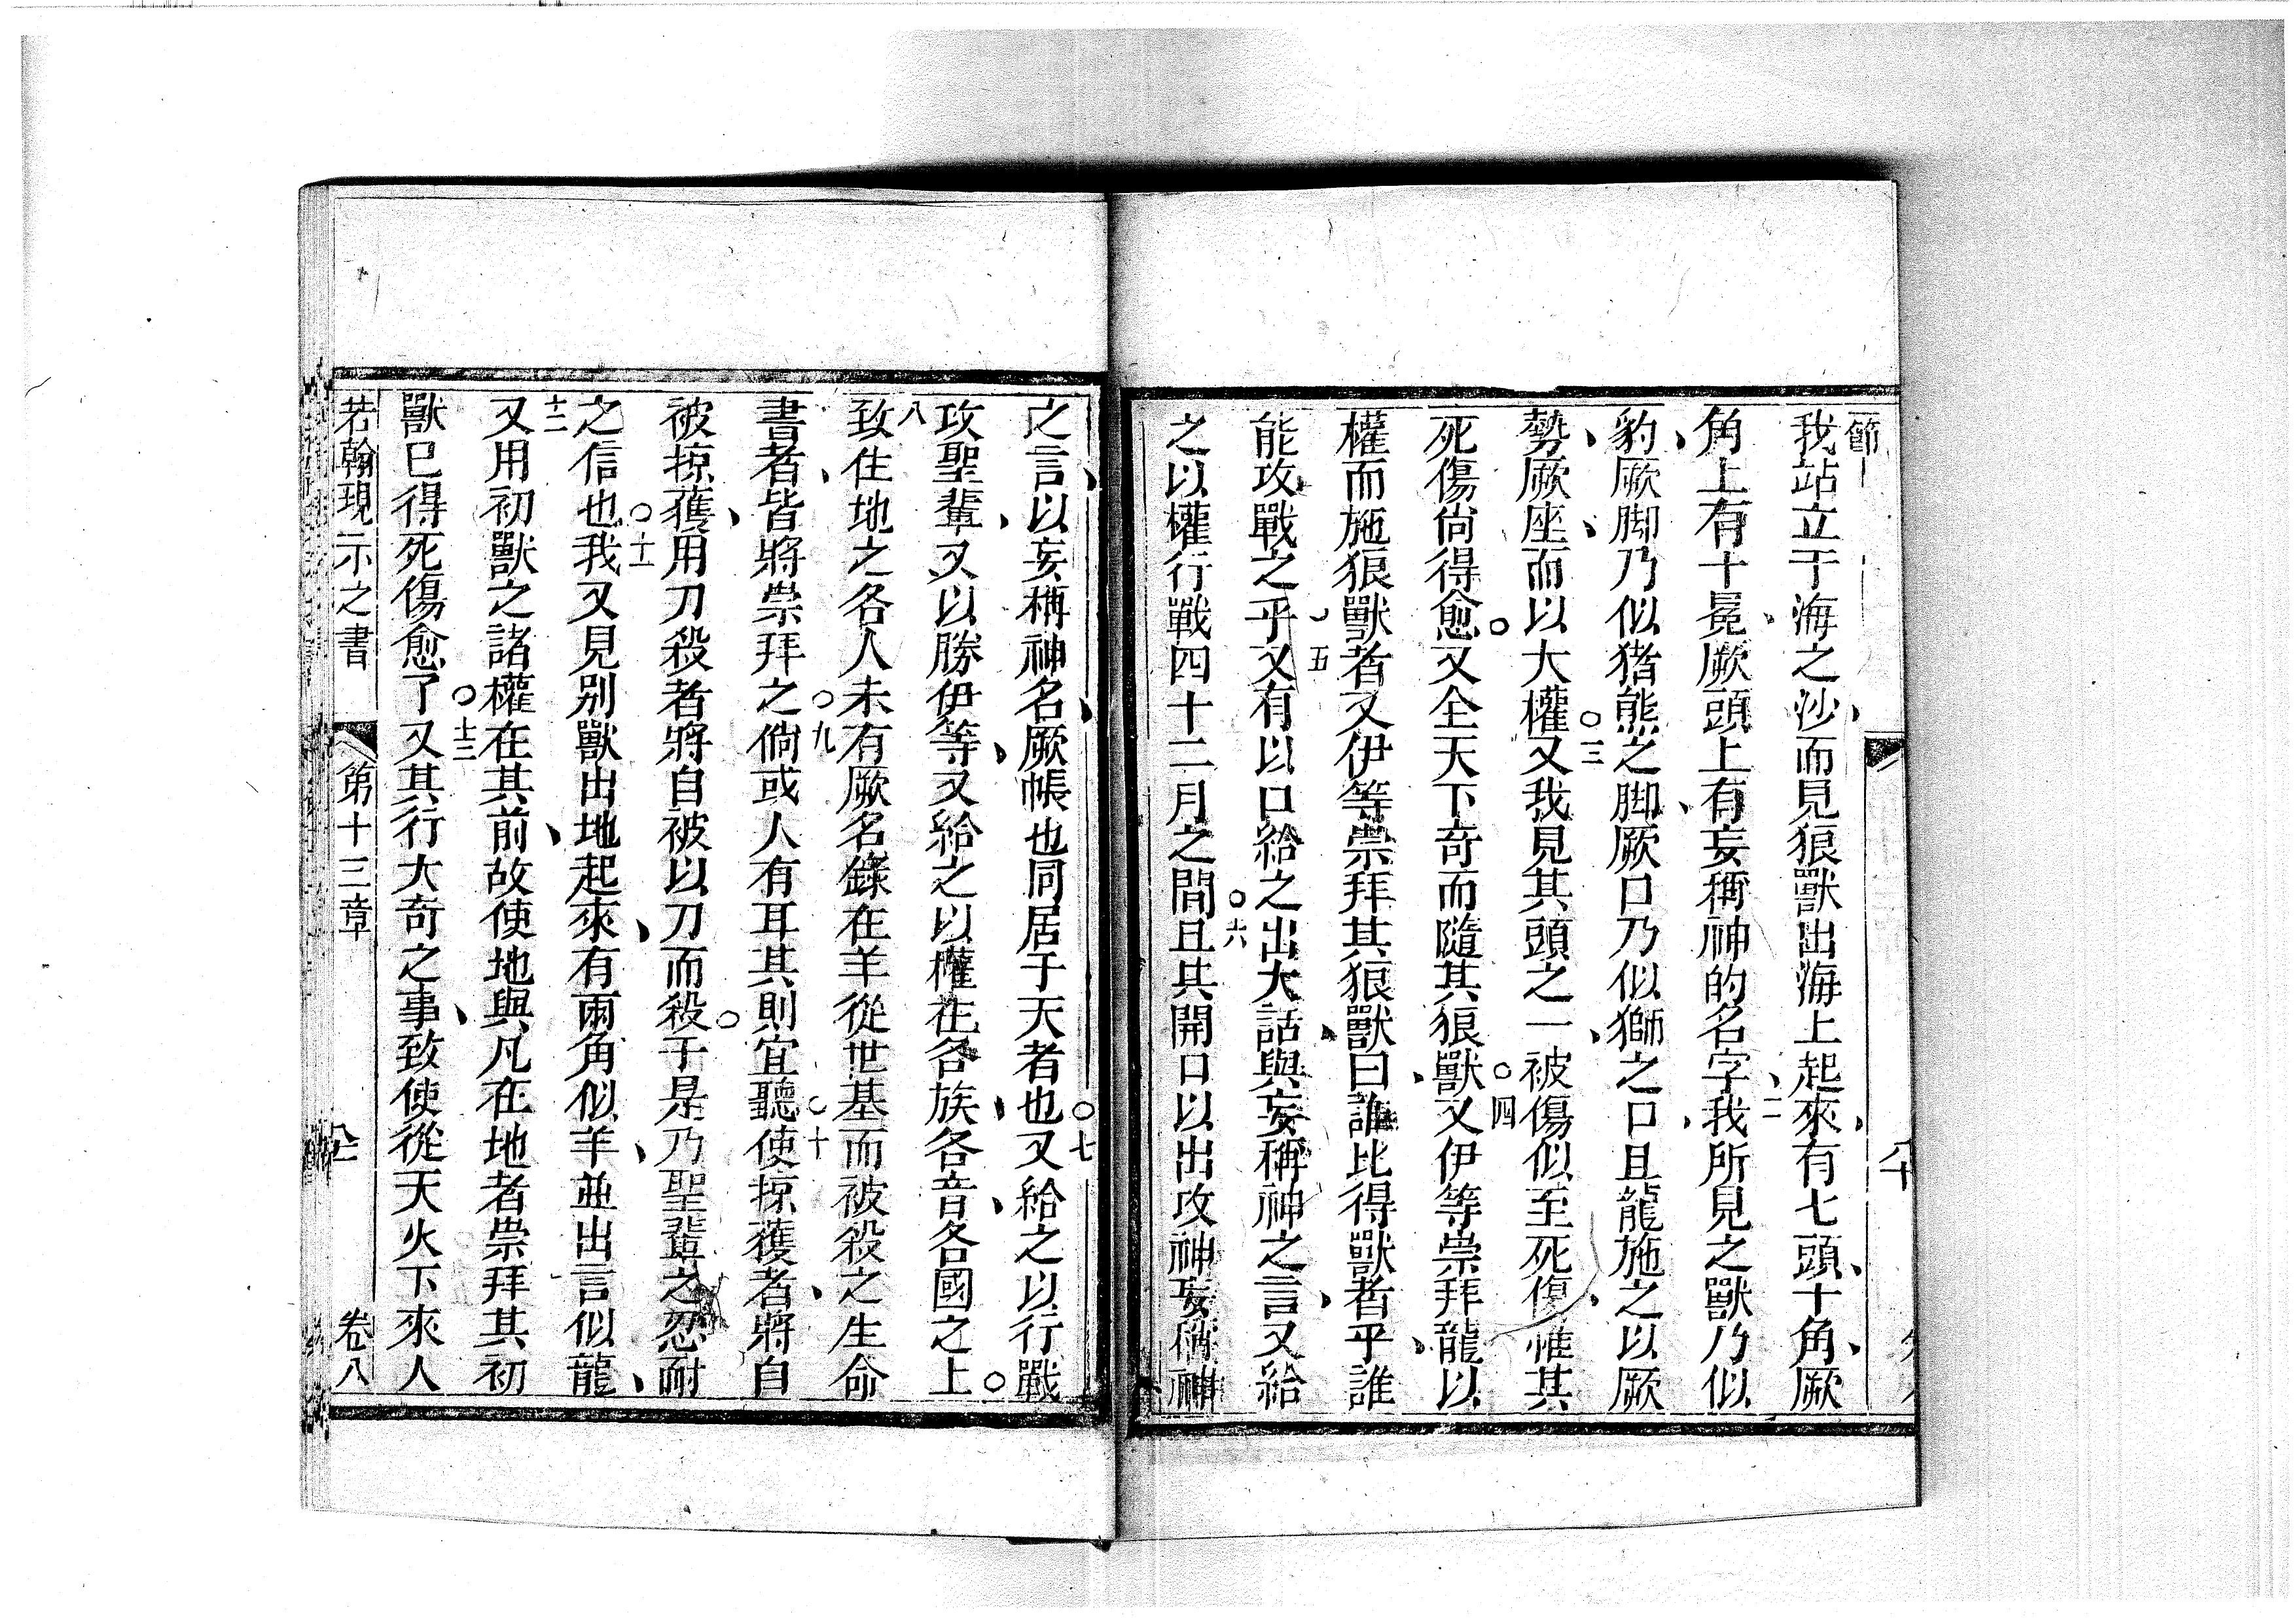 一節
我站立于海之沙而見狼獸出海上起來有七頭十角厥
角上有十冕厥頭上有妄稱神的名字二我所見之獸乃似
豹厥脚乃似猪熊之脚厥口乃似獅之口且龍施之以厥
勢厥座而以大權○三又我見其頭之一被傷似至死傷惟其
死傷尙得愈○又全天下奇而隨其狼獸○四又伊等崇拜龍以
權而施狼獸者又伊等崇拜其狼獸曰誰比得獸者乎誰
能攻戰之乎五又有以口給之出大話與妄稱神之言又給
之以權行戰四十二月之間○六且其開口以出攻神妄稱神
之言以妄稱神名厥帳也同居于天者也○七又給之以行戰
攻聖輩又以勝伊等又給之以權在各族各音各國之上○
八致住地之各人未有厥名錄在羊從世基而被殺之生命
書者皆將崇拜之○九倘或人有耳其則宜聽○十使掠獲者將自
被掠獲用刀殺者將自被以刀而殺○于是乃聖輩之忍耐
之信也○十一我又見別獸出地起來有兩角似羊並出言似龍
十二又用初獸之諸權在其前故使地與凡在地者崇拜其初
獸巳得死傷愈了○十三又其行大奇之事致使從天火下來人
若翰現示之書 第十三章 卷八